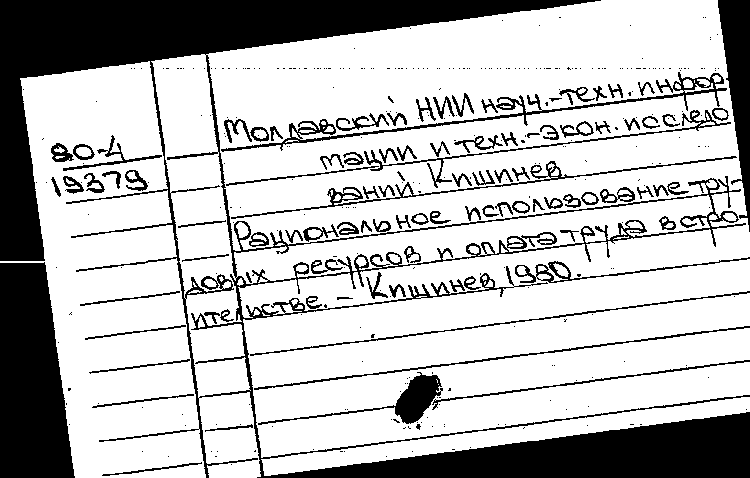 80-4
19379
Молдавский НИИ науч.-техн. инфор-
мации и техн.-экон. исследо
ваний. Кишинев.
Рациональное использование тру-
довых ресурсов и оплата труда в стро-
ительстве. - Кишинев, 1980.